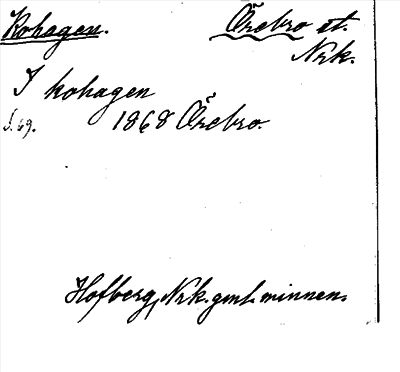 Kohagen. Örebro st.
Nrk.
I kohagen
s. 69. 1868 Örebro.
Hofberg, Nrk. gml. minnen.